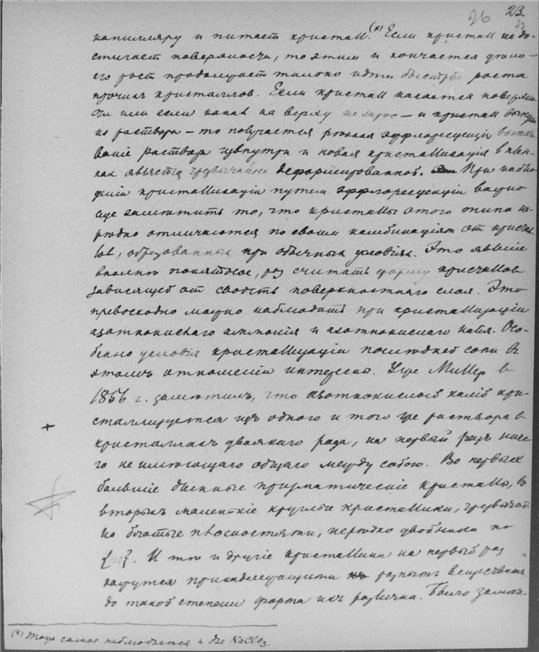 26 23.
капилляру и питает кристалл.(x) Если кристалл не до-
стигает поверхности, то этим и кончается дело –
его рост продолжает только идти быстрее роста
прочих кристаллов. Если кристалл касается поверхно-
сти или если капля на верху – и кристалл
из раствора – то получается эффлоресценция
раствора изнутри и новая кристаллизация в
является чрезвычайно деформированной. При наблю-
дении кристаллизации путем эффлоресценции важно
еще заметить то, что кристаллы этого типа не-
редко отличаются по своим комбинациям от кристал-
лов, образованных при обычных условиях. Это явление
вполне понятное, раз считать форму кристаллов
зависящей от свойств поверхностного слоя. Это
превосходно можно наблюдать при кристаллизации
азотнокислаго аммония и азотнокислаго калия. Осо-
бенно условия кристаллизации последней соли в
этом отношении интересны. Уже Миллер в
1866 г. заметил, что азотнокислый калий кри-
сталлизуется из одного и того же раствора в
кристаллах двоякого рода, на первый раз ниче-
го не имеющаго общаго между собою. Во первых
большие длинные призматические кристаллы, во
вторых маленькие круглые кристаллики, чрезвычай-
но богатые плоскостями, нередко двойники по
{}. И те и другие кристаллики на первый раз
кажутся принадлежащими разным веществам,
до такой степени форма их различна. Было заме-
(x) Тоже самое наблюдается и для NaClO3.